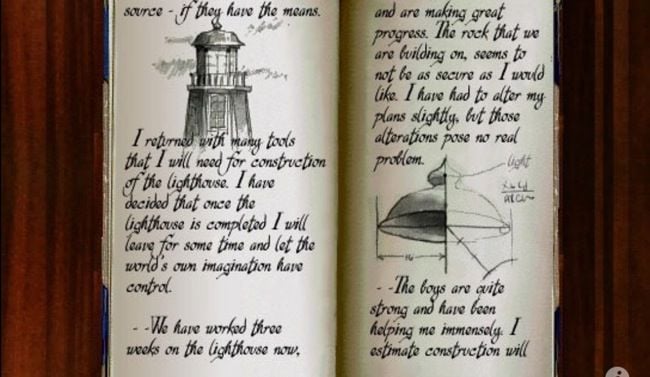 source - if they have the means.
I returned with many tools
that I will need for construction
of the lighthouse. I have
decided that once the
lighthouse is completed I will
leave for some time and let the
world's own imagination have
control.
- -We have worked three
weeks on the lighthouse now,
and are making great
progress. The rock that we
are building on, seems to
not be as secure as I would
like. I have had to alter my
plans slightly, but those
alterations pose no real
problem.
light
- -The boys are quite
strong and have been
helping me immensely. I
estimate construction will